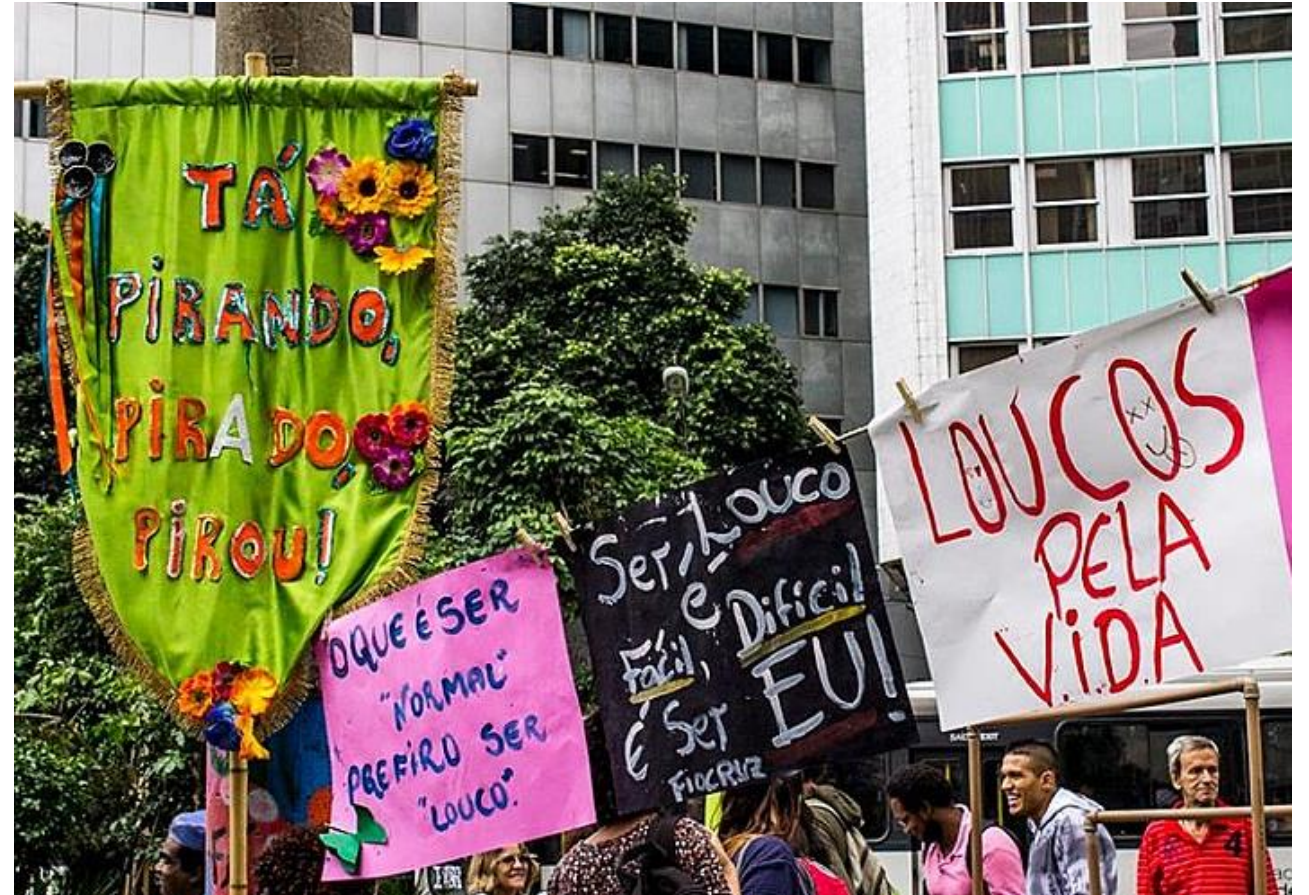 TÁ
PIRANDO,
PIRADO,
PIROU!
O QUE É SER
"NORMAL"
PREFIRO SER
"LOUCO".
Ser, Louco
e
Fácil, Dificil
é Ser EU!
FIOCRUZ
LOUCOS
PELA
V.i.D.A
4